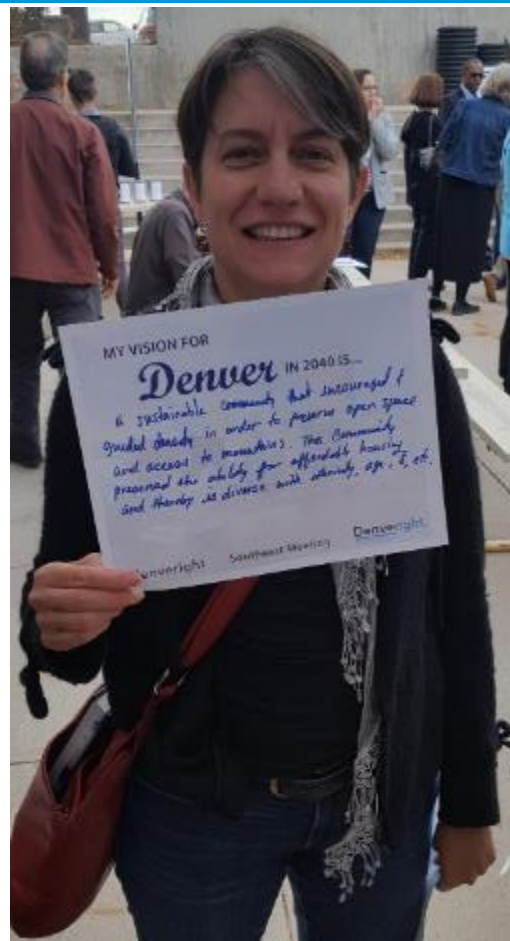 MY VISION FOR
Denver IN 2040 IS...
a sustainable community that encouraged &
guided density in order to preserve open space
and access to mountains. This community
preserved the ability for affordable housing
and thereby is diverse with ethnicity, age, $, etc.
Denveright Southeast Meeting Denveright